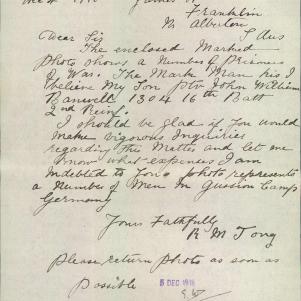 James St
Franklin
Nr Alberton
S Aus
Dear Sir
The enclosed Marked
Photo shows a Number of Prisoners
of War. The Mark Man his I
believe My Son Ptv John William
Banwell 1304 16th Batt
2nd Reinf.
I should be glad if you would
make vigorous Inquiries
regarding this Matter and let me
know what expenses I am
indebted to you photo represents
a Number of Men in Camp
Germany
Yours Faithfully
R M Tong
Please return photo as soon as
possible
5 DEC 1916